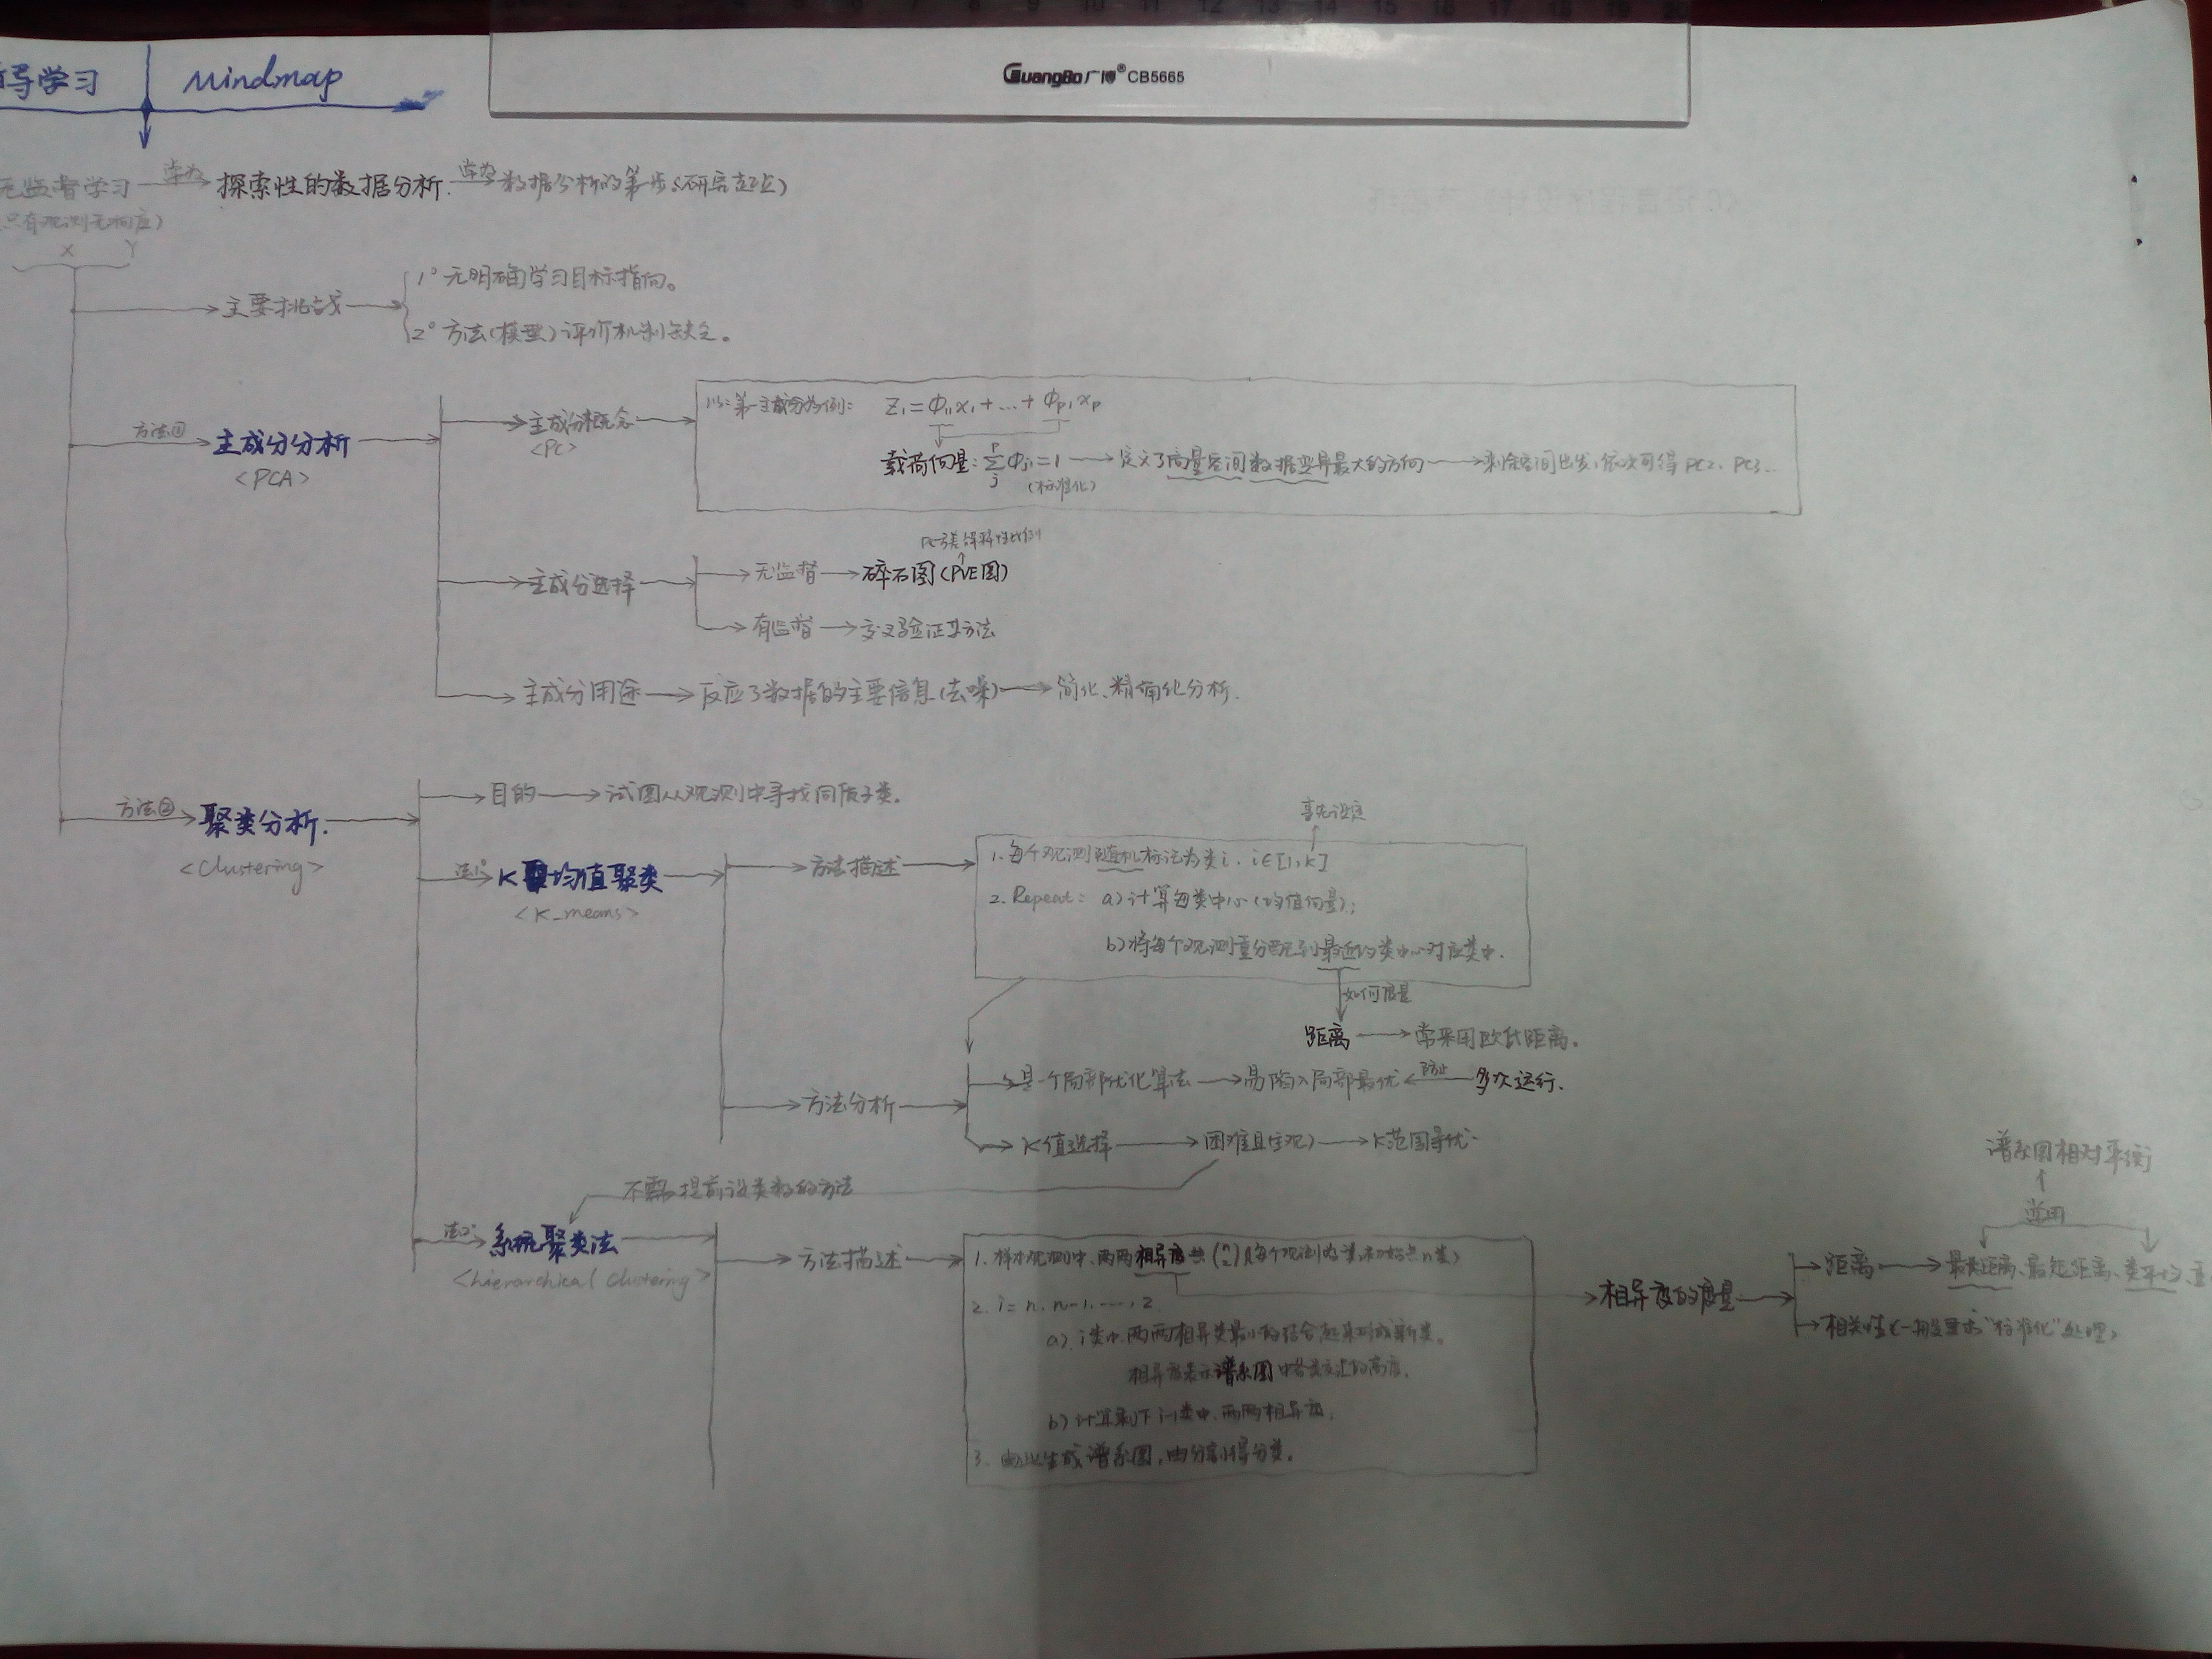 导学习 Mindmap
GuangBo广博® CB5665
无监督学习 常为 探索性的数据分析. 常为 数据分析的第一步(研究起点)
只有观测无响应)
X Y
主要挑战
1° 无明确学习目标指向。
2° 方法(模型)评价机制缺乏。
方法① 主成分分析
<PCA>
主成分概念
<PC>
以第一主成分为例: Z₁=Φ₁₁x₁+…+Φp₁xp
载荷向量: Σ Φj₁=1 定义了向量空间数据变异最大的方向 剩余空间出发,依次可得PC2、PC3…
p
j
(标准化)
主成分选择
无监督 碎石图(PVE图)
有监督 交叉验证等方法
主成分用途 反应了数据的主要信息(去噪) 简化、精简化分析.
方法② 聚类分析.
<Clustering>
目的 试图从观测中寻找同质子类。
法1° K 均值聚类
<K_means>
方法描述
事先设定
1.每个观测随机标记为类i. i∈[1,K]
2.Repeat: a)计算每类中心(均值向量);
b)将每个观测重分配到最近的类中心对应类中.
如何度量
距离 常采用欧氏距离。
方法分析
是个局部优化算法 易陷入局部最优 防止 多次运行.
K值选择 困难且主观) K范围寻优.
不需提前设类数的方法
法2° 系统聚类法
<hierarchical clustering>
方法描述
1.样本观测中,两两相异度共(n 2)
2. i=n, n-1, …, 2
a) i类中,两两相异类最小的结合起来形成新类。
相异度表示谱系图中各类交汇的高度.
b)计算剩下i-1类中,两两相异度.
3. 由此生成谱系图,由分割得分类。
相异度的度量
谱系图相对平衡
常用
距离 最长距离、最短距离、类平均、重
相关性(一般要求"标准化"处理)